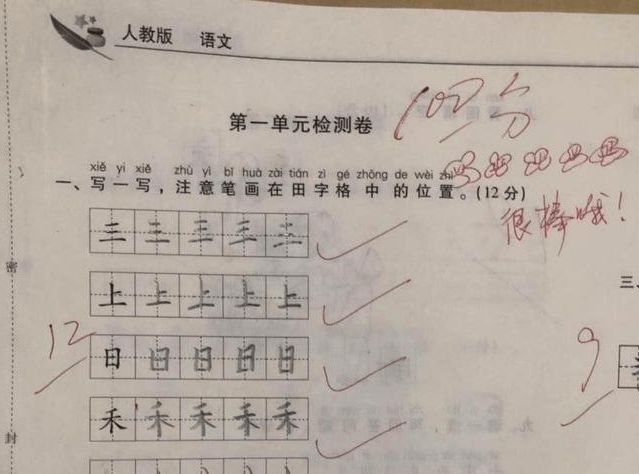 人教版 语文
第一单元检测卷
100分
xiě yi xiě zhù yì bǐ huà zài tián zì gé zhōng de wèi zhì
一、写一写，注意笔画在田字格中的位置。(12分)
很棒哦！
三 三 三 三 三
上 上 上 上 上
12
日 日 日 日 日
禾 禾 禾 禾 禾
三、
9
密
封